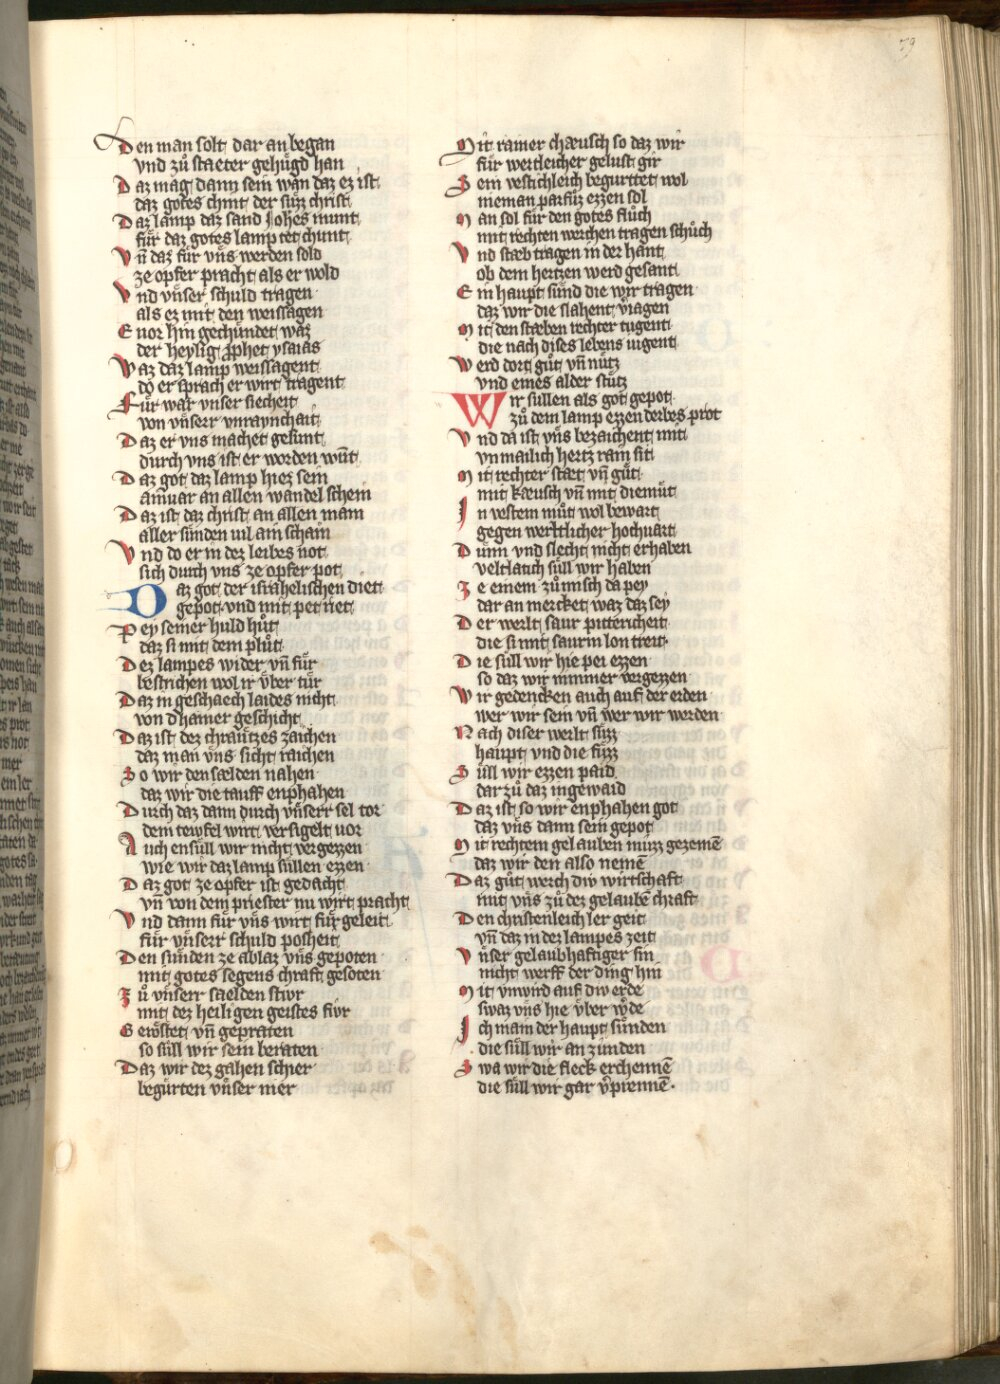 79
Den man solt dar an began
vnd zů staeter gehůgd han
Daz mag dann sein wan daz ez ist
daz gotes chint der suzz christ
Daz lamp daz sand Johes nunt
für daz gotes lamp tet chunt
Vn̄ daz für vns werden sold
ze opfer pracht als er wold
Vnd vnser schuld tragen
als ez mit den weissagen
E uor hin gechündet waz
der heylig prophet ysaias
Waz daz lamp weissagent
do er sprach er wirt tragent
Für war vnser siecheit
von vnserr vnraynchait
Daz er vns machet gesunt
durch vns ist er worden wūt
Daz got daz lamp hiez sein
an allen wandel schein
Daz ist daz christ an allen main
aller sünden vil ain schain
Vnd do er in dez leibes not
sich durch vns ze opfer pot
Daz got der israhelischen diet
gepot vnd mit pet riet
Pey seiner huld hůt
daz si mit dem plůt
Dez lampes wider vn̄ für
bestrichen wol ir über tür
Daz in geschaech laides nicht
von dhainer geschicht
Daz ist dez chraützes zaichen
daz man vns sicht raichen
So wir den saelden nahen
daz wir die tauff enphahen
Durch daz dann durch vnserr sel tor
dem teufel wirt versigelt vor
Auch ensüll wir nicht vergezzen
wie wir daz lamp süllen ezzen
Daz got ze opfer ist gedacht
vn̄ von dem priester nu wirt pracht
Vnd dann für vns wirt für geleit
für vnserr schuld posheit
Den sünden ze ablaz vns gepoten
mit gotes segens chraft gesoten
Zů vnserr saelden stiwr
mit dez heiligen geistes fiwr
Geröstet vn̄ gepraten
so süll wir sein beraten
Daz wir dez gahen schier
begürten vnser nier
Mit rainer chaeusch so daz wir
für wertleicher gelust gir
Sein vestichleich begurttet wol
nieman parfůz ezzen sol
Man sol für den gotes flůch
mit rechten werchen tragen schůch
Vnd staeb tragen in der hant
ob dem hertzen werd gesant
Ein haupt sünd die wir tragen
daz wir die slahent vragen
Mit den staeben rechter tugent
die nach dises lebens iugent
Werd dort gůt vn̄ nütz
vnd eines alder stütz
Wir süllen als got gepot
zů dem lamp ezzen derbes prot
Vnd da ist vns bezaichent mit
vnmailich hertz rain sit
Mit rechter staet vn̄ gůt
mit kaeusch vn̄ mit diemůt
In vestem můt wol bewart
gegen werltlicher hochuart
Dünn vnd slecht nicht erhaben
veltlatich süll wir haben
Ze einem zůmisch da pey
dar an mercket waz daz sey
Der werlt saur pittericheit
die si mit saurm lon treit
Die süll wir hie pei ezzen
so daz wir nimmer vergezzen
Wir gedencken auch auf der erden
wer wir sein vn̄ wer wir werden
Nach diser werlt süzz
haupt vnd die füzz
Süll wir ezzen paid
dar zů daz ingewaid
Daz ist so wir enphahen got
daz vns dann sein gepot
Mit rechtem gelauben müzz gezemē
daz wir den also nemē
Daz gůt werch div wirtschaft
mit vns zů dez gelaubē chraft
Den christenleich ler geit
vn̄ daz in dez lampes zeit
Vnser gelaubhaftiger sin
nicht werff der ding hin
Mit vnwird auf div erde
swaz vns hie über wde
Ich main der haupt sünden
die süll wir an zünden
Swa wir die fleck erchennē
die süll wir gar vprennē.